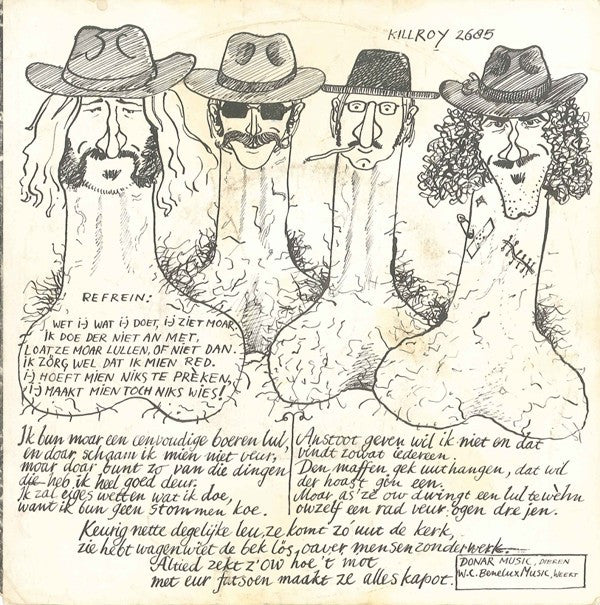 KILLROY 2685
REFREIN:
WET I-J WAT I-J DOET, I-J ZIET MOAR
IK DOE DER NIET AN MET,
LOAT ZE MOAR LULLEN, OF NIET DAN.
IK ZÖRG WEL DAT IK MIEN RED.
I-J HOEFT MIEN NIKS TE PRÈKEN,
I-J MAAKT MIEN TOCH NIKS WIES!
Ik bun moar een eenvoudige boeren lul,
en doar schaam ik mien niet veur,
moar doar bunt zo van die dingen
die heb ik heel goed deur.
Ik zal eiges wetten wat ik doe,
want ik bun geen stommen koe.
Anstoot geven wil ik niet en dat
vindt zowat iedereen.
Den maffen gek uuthangen, dat wil
der hoast gin een.
Moar as ze ow dwingt een lul te wèhn
owzelf een rad veur ogen dre jen.
Keurig nette degelijke leu, ze komt zó uut de kerk,
zie hebt wagenwiet de bek lös, oaver mensen zonder werk.
Altied zekt z'ow hoe't mot
met eur fatsoen maakt ze alles kapot.
DONAR MUSIC, DIEREN
W.C. Benelux Music, WEERT